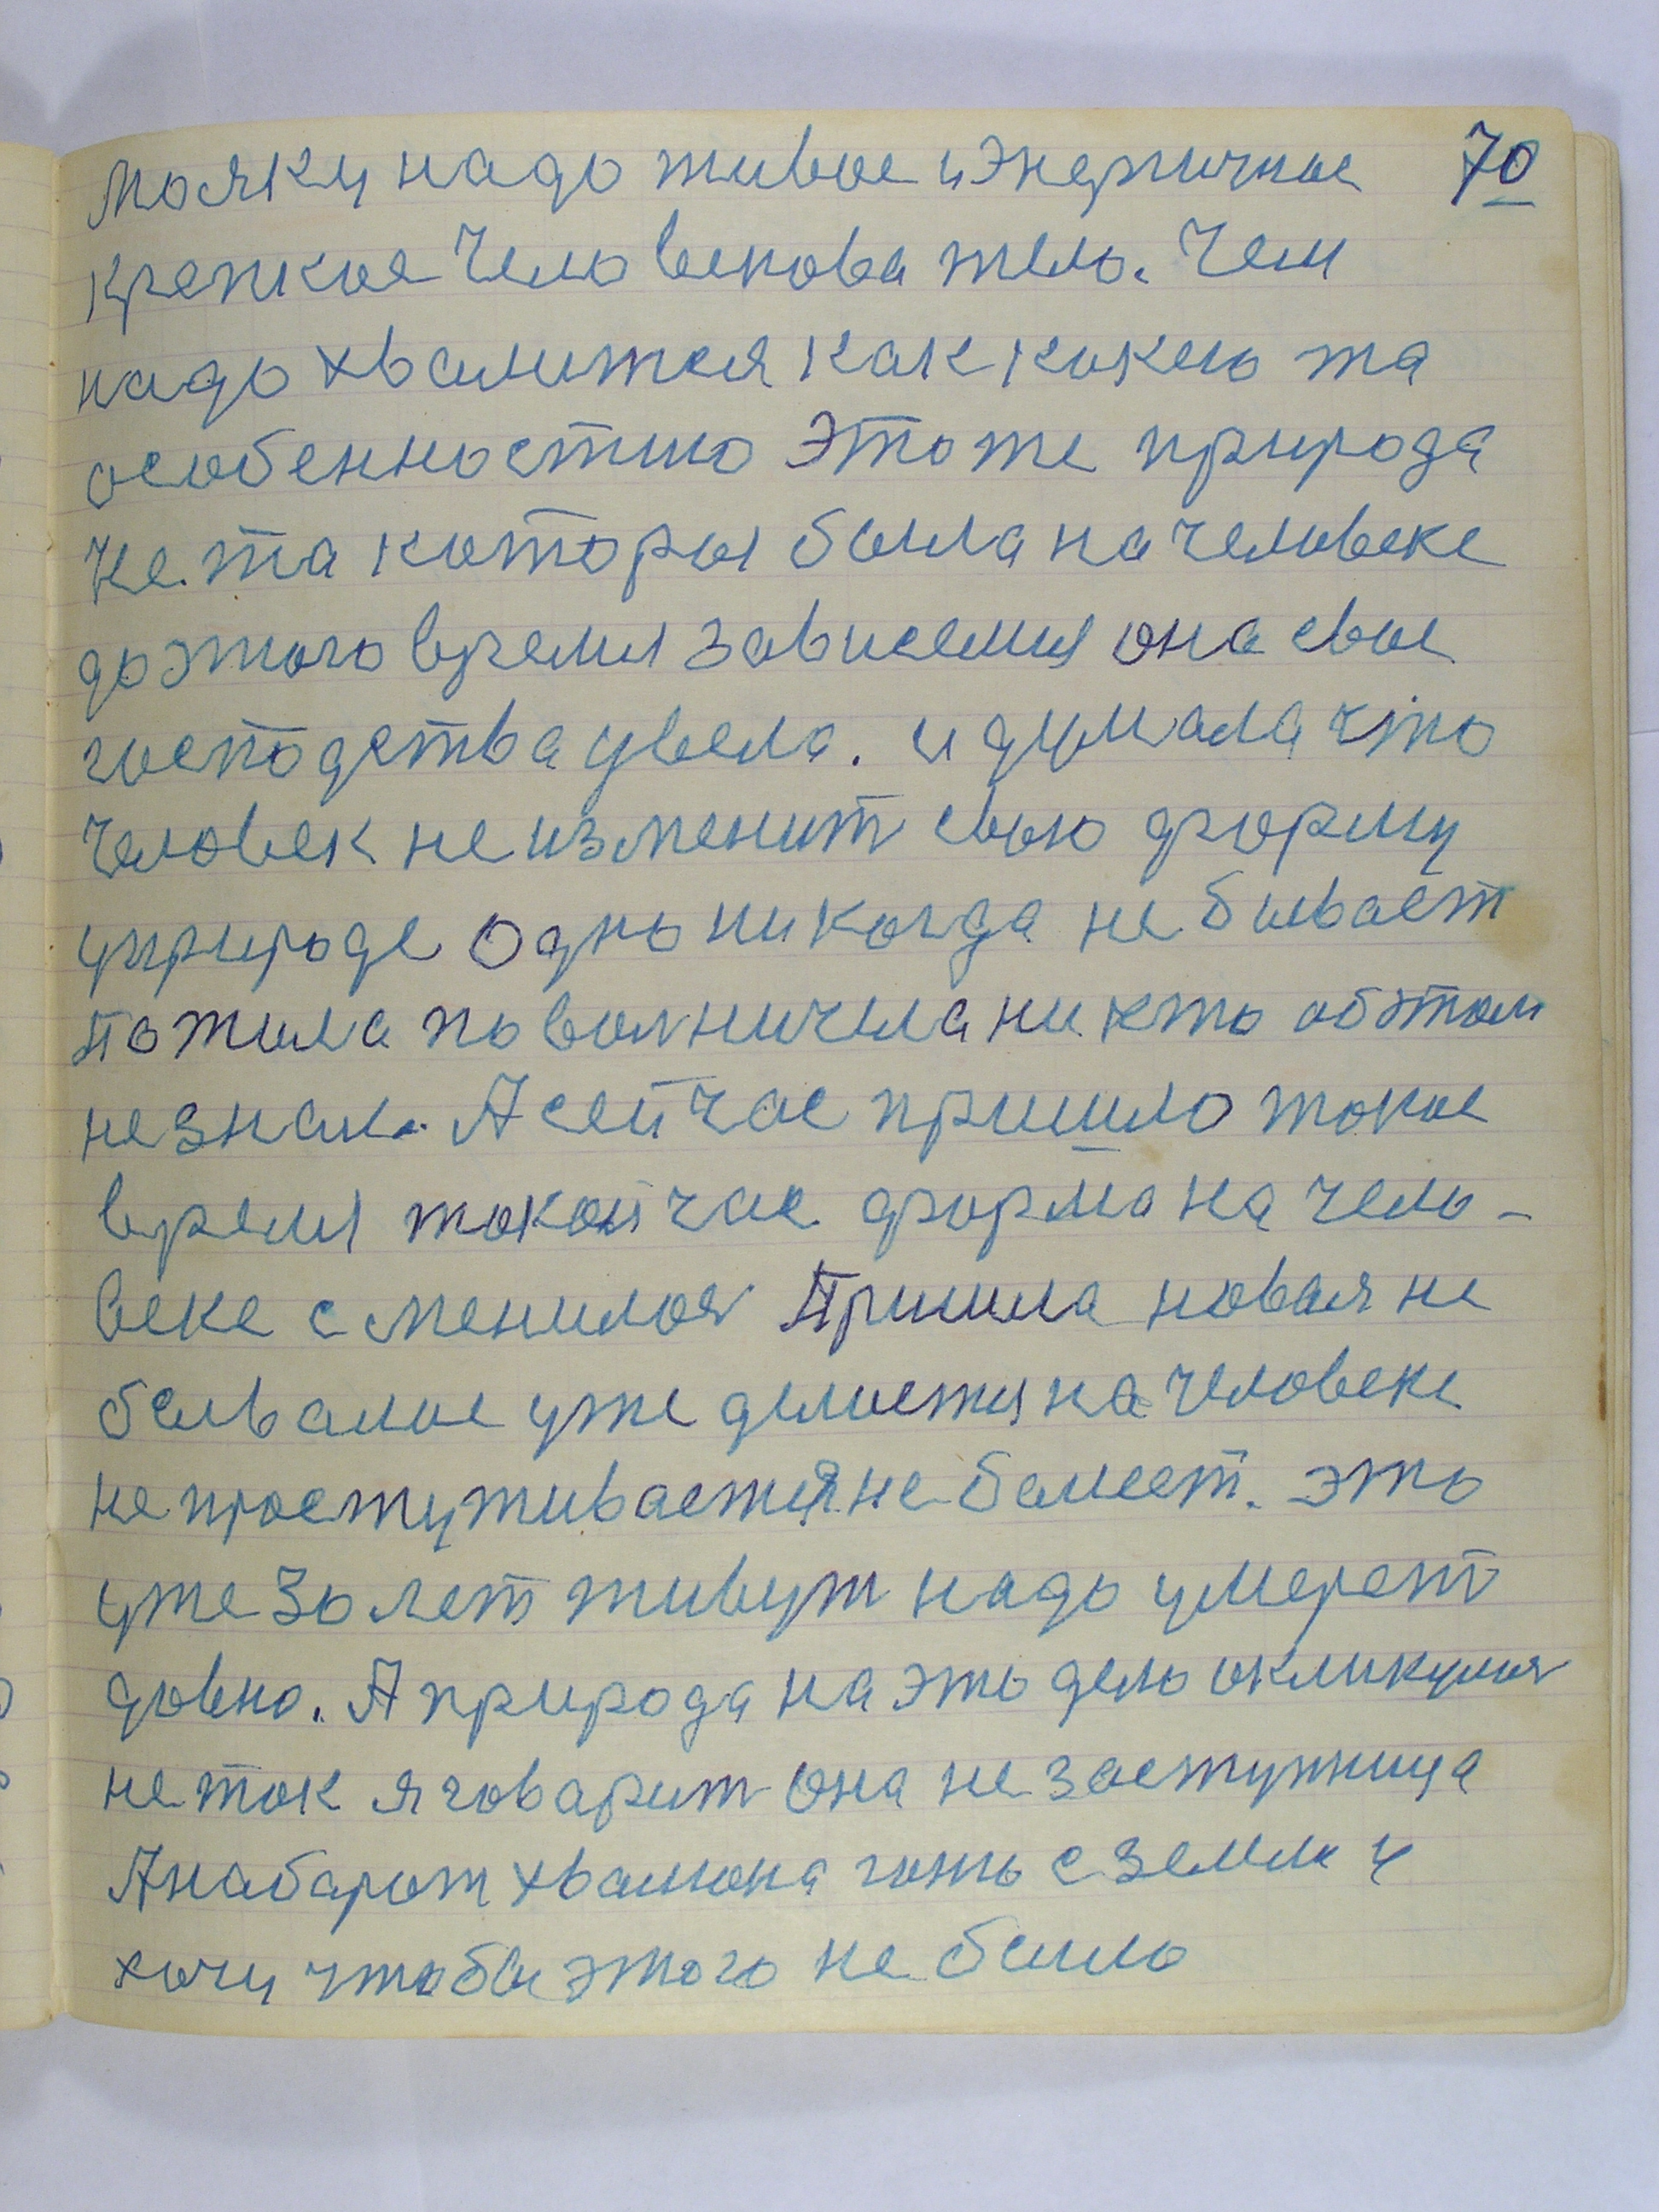 70
Мояку надо живое и энергичное
крепкое Человекова тело. Чем
надо хвалится как какею та
особенностию Это же природа
не та которы была на человеке
до этого время зависемия она свое
господства увела. и думала что
Человек не изменит свою форму
уприроде Одно никогда не бывает
пожила поволничила никто обэтом
не знал. А сейчас пришло токое
время токой час форма на чело-
веке сменилоя Пришла новая не
бывалое уже делоется на человеке
не простуживается не болеет. это
уже 30 лет живут надо умерет
довно. А природа на это дело окликулоя
не ток я говарит она не заступница
Анабарот хвалюна гото с земли и
хочу чтобы этого не было